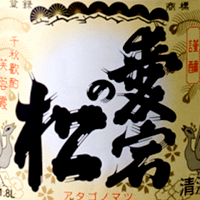 登録
商標
謹醸
愛宕の松
千秋歌酌芙蓉霞
アタゴノマツ
清
1.8L